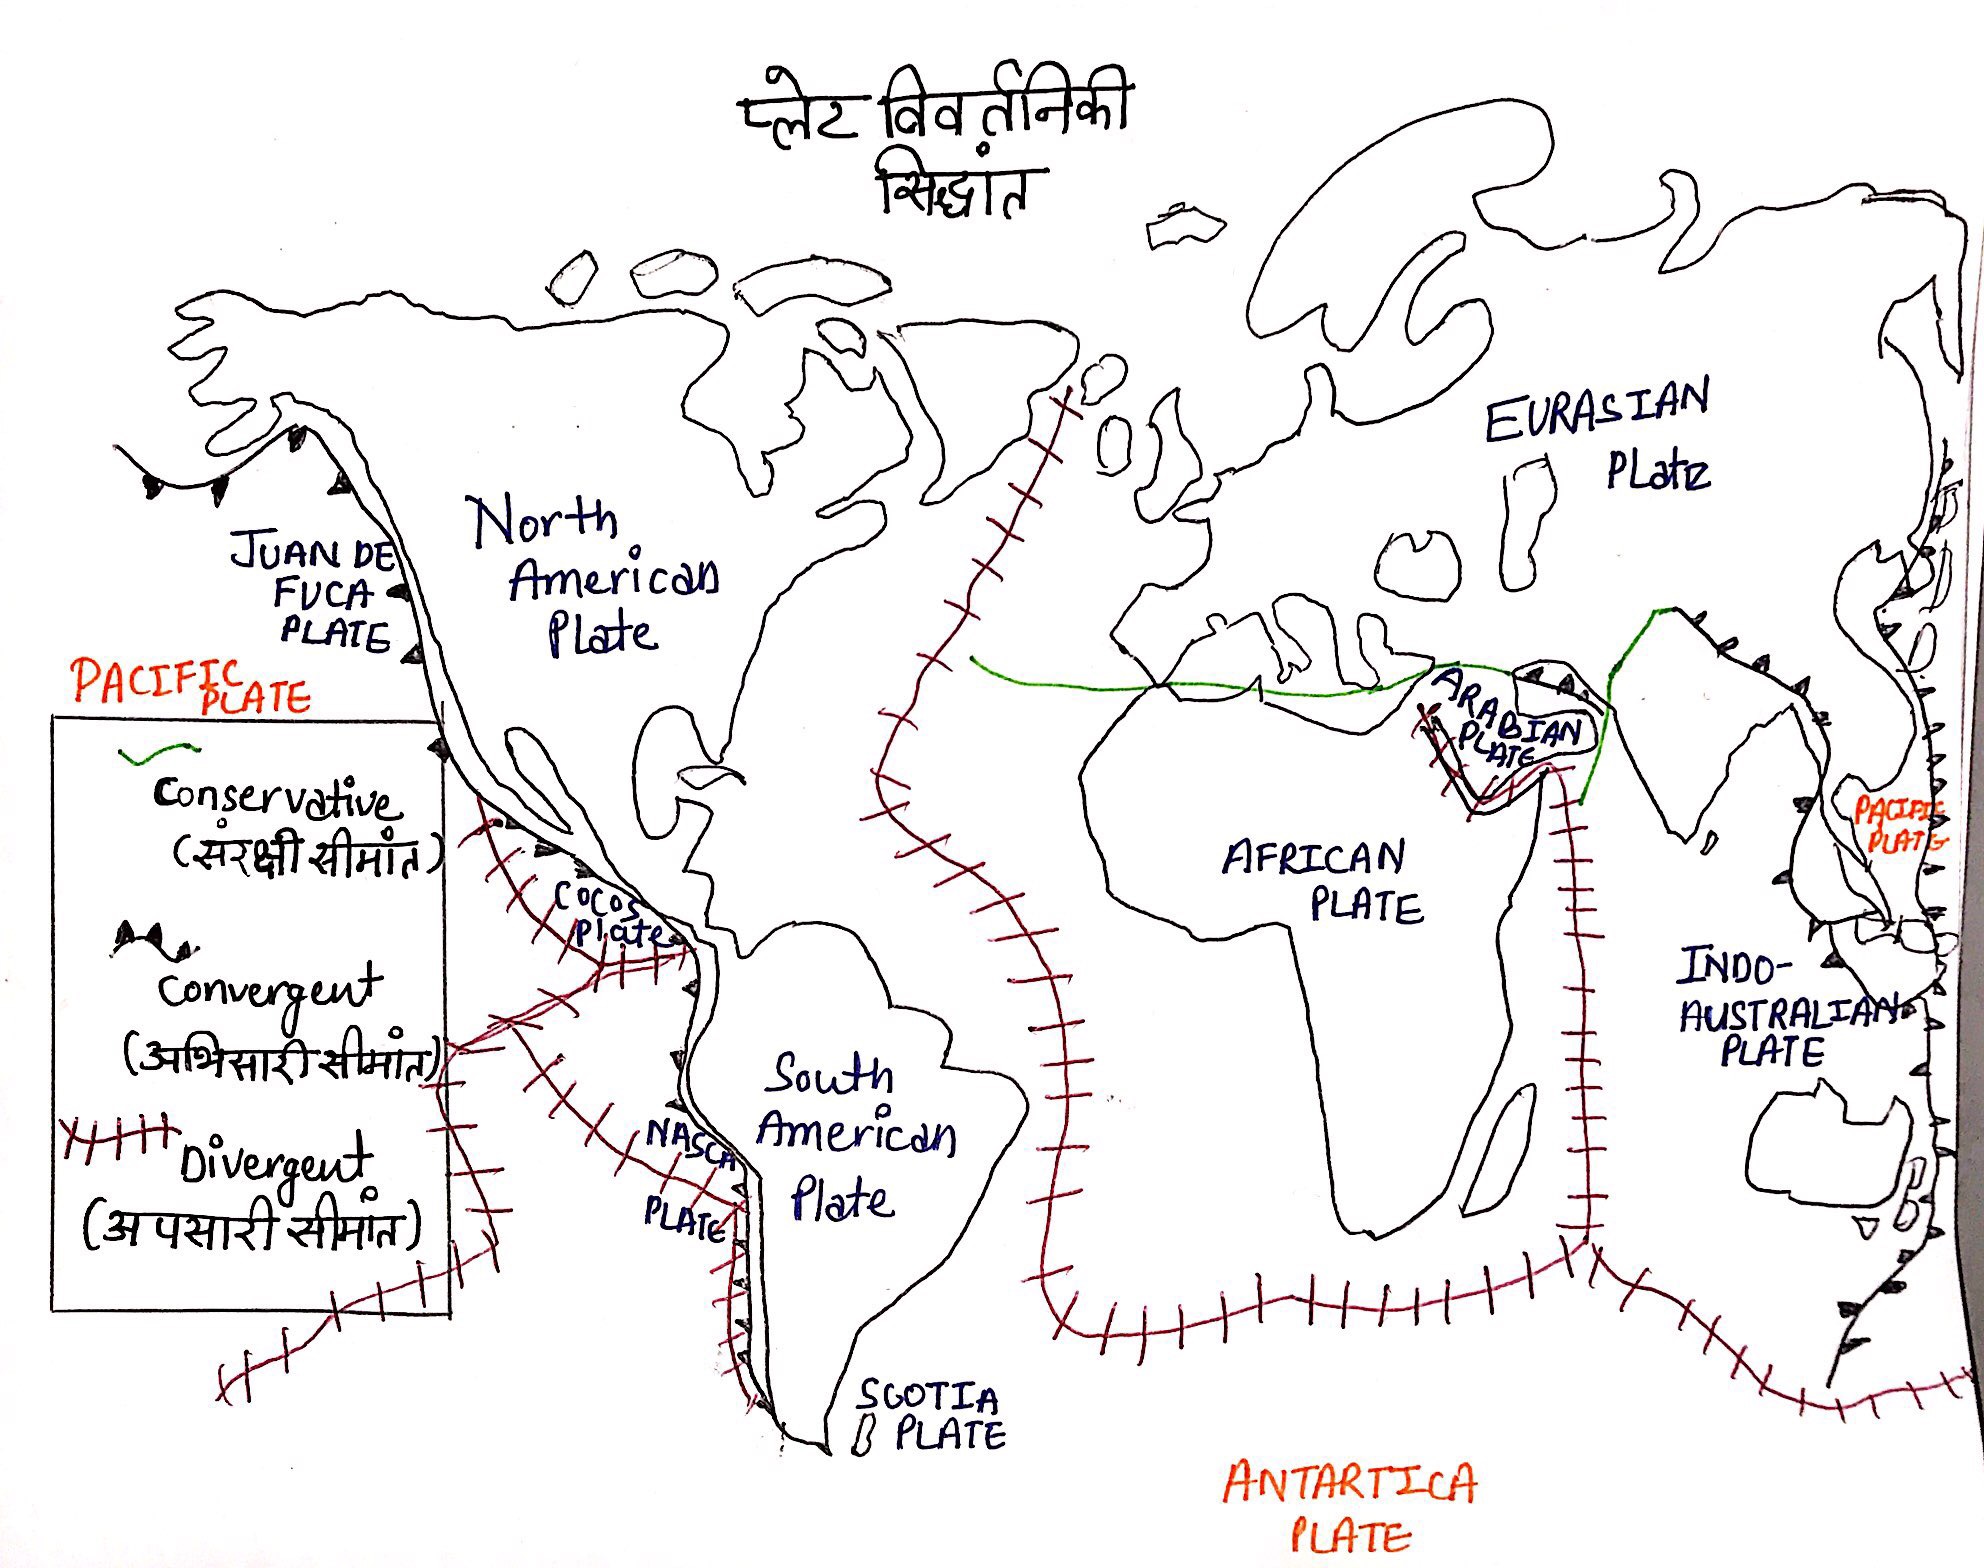 प्लेट विवर्तनिकी
सिद्धांत
EURASIAN
PLate
North
American
Plate
JUAN DE
FUCA
PLATE
PACIFIC
PLATE
Conservative
(संरक्षी सीमांत)
Convergent
(अभिसारी सीमांत)
Divergent
(अपसारी सीमांत)
ARABIAN
PLATE
PACIFIC
PLATE
AFRICAN
PLATE
COCOS
Plate
INDO-
AUSTRALIAN
PLATE
South
American
Plate
NASCA
PLATE
SCOTIA
PLATE
ANTARTICA
PLATE